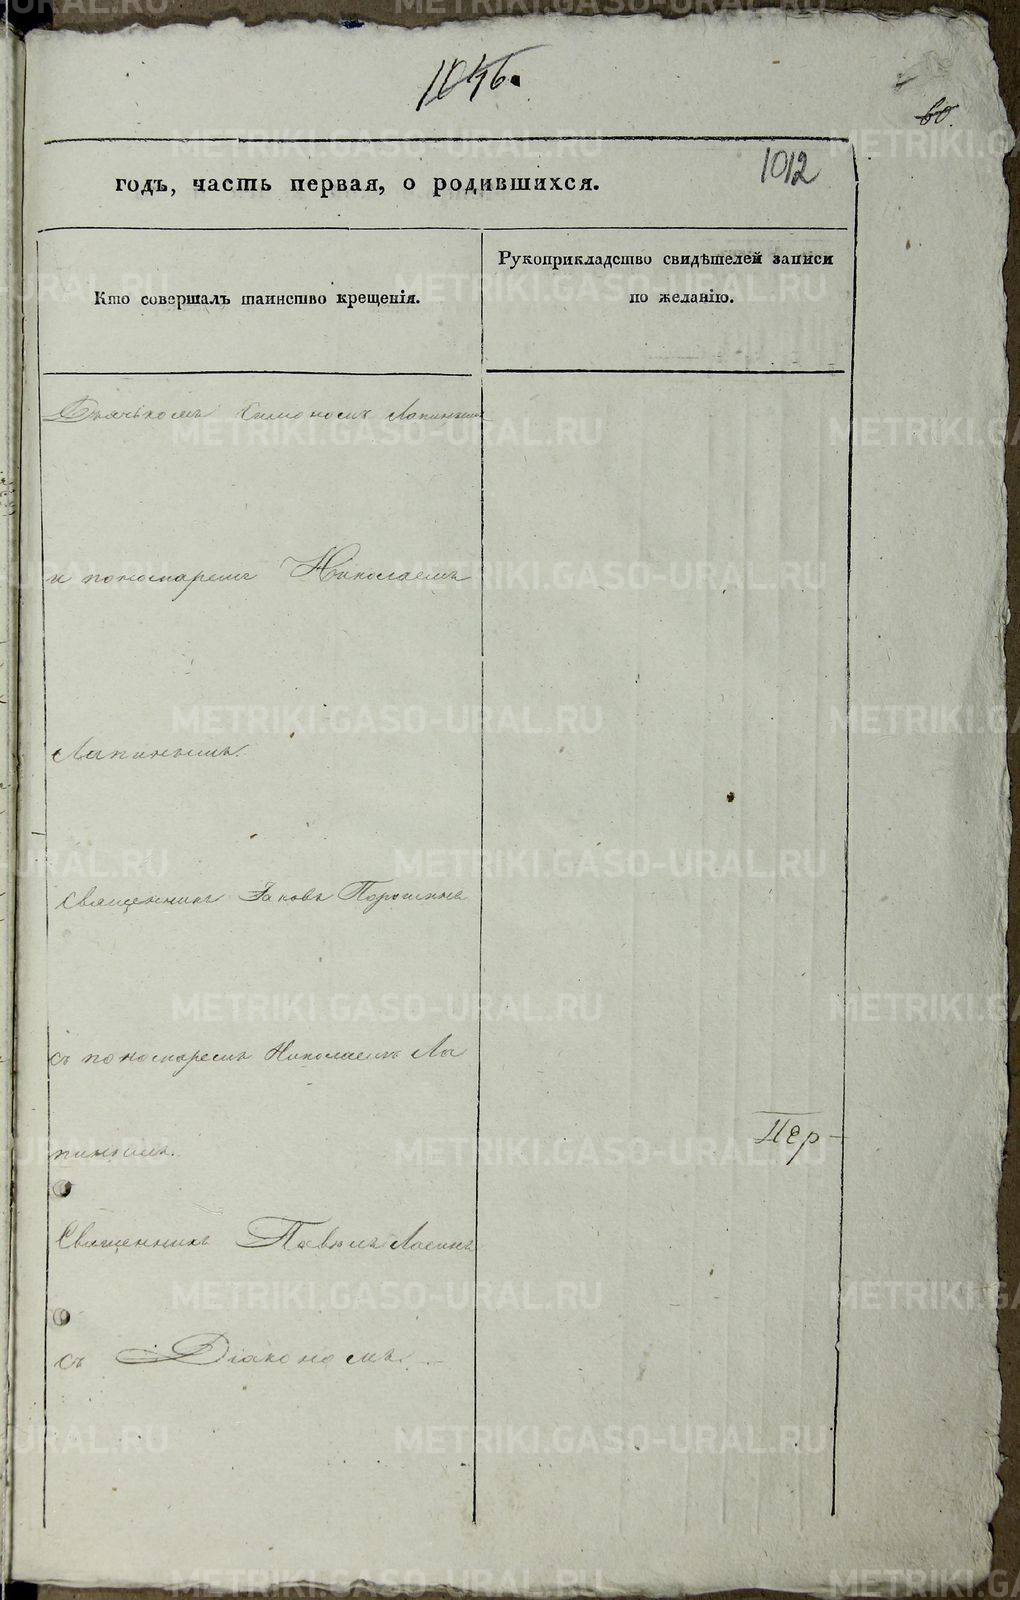 1046.
60.
1012
годъ, часть первая, о родившихся.
Кто совершалъ таинство крещенія.
Рукоприкладство свидѣтелей записи
по желанію.
Дьячькомъ Симономъ Лапинымъ
и пономаремъ Николаемъ
Лапинымъ.
Священникъ Іаковъ Порошинъ
съ пономаремъ Николаемъ Ла
пинымъ.
Пер-
Священникъ Павелъ
съ Діакономъ.
METRIKI.GASO-URAL.RU